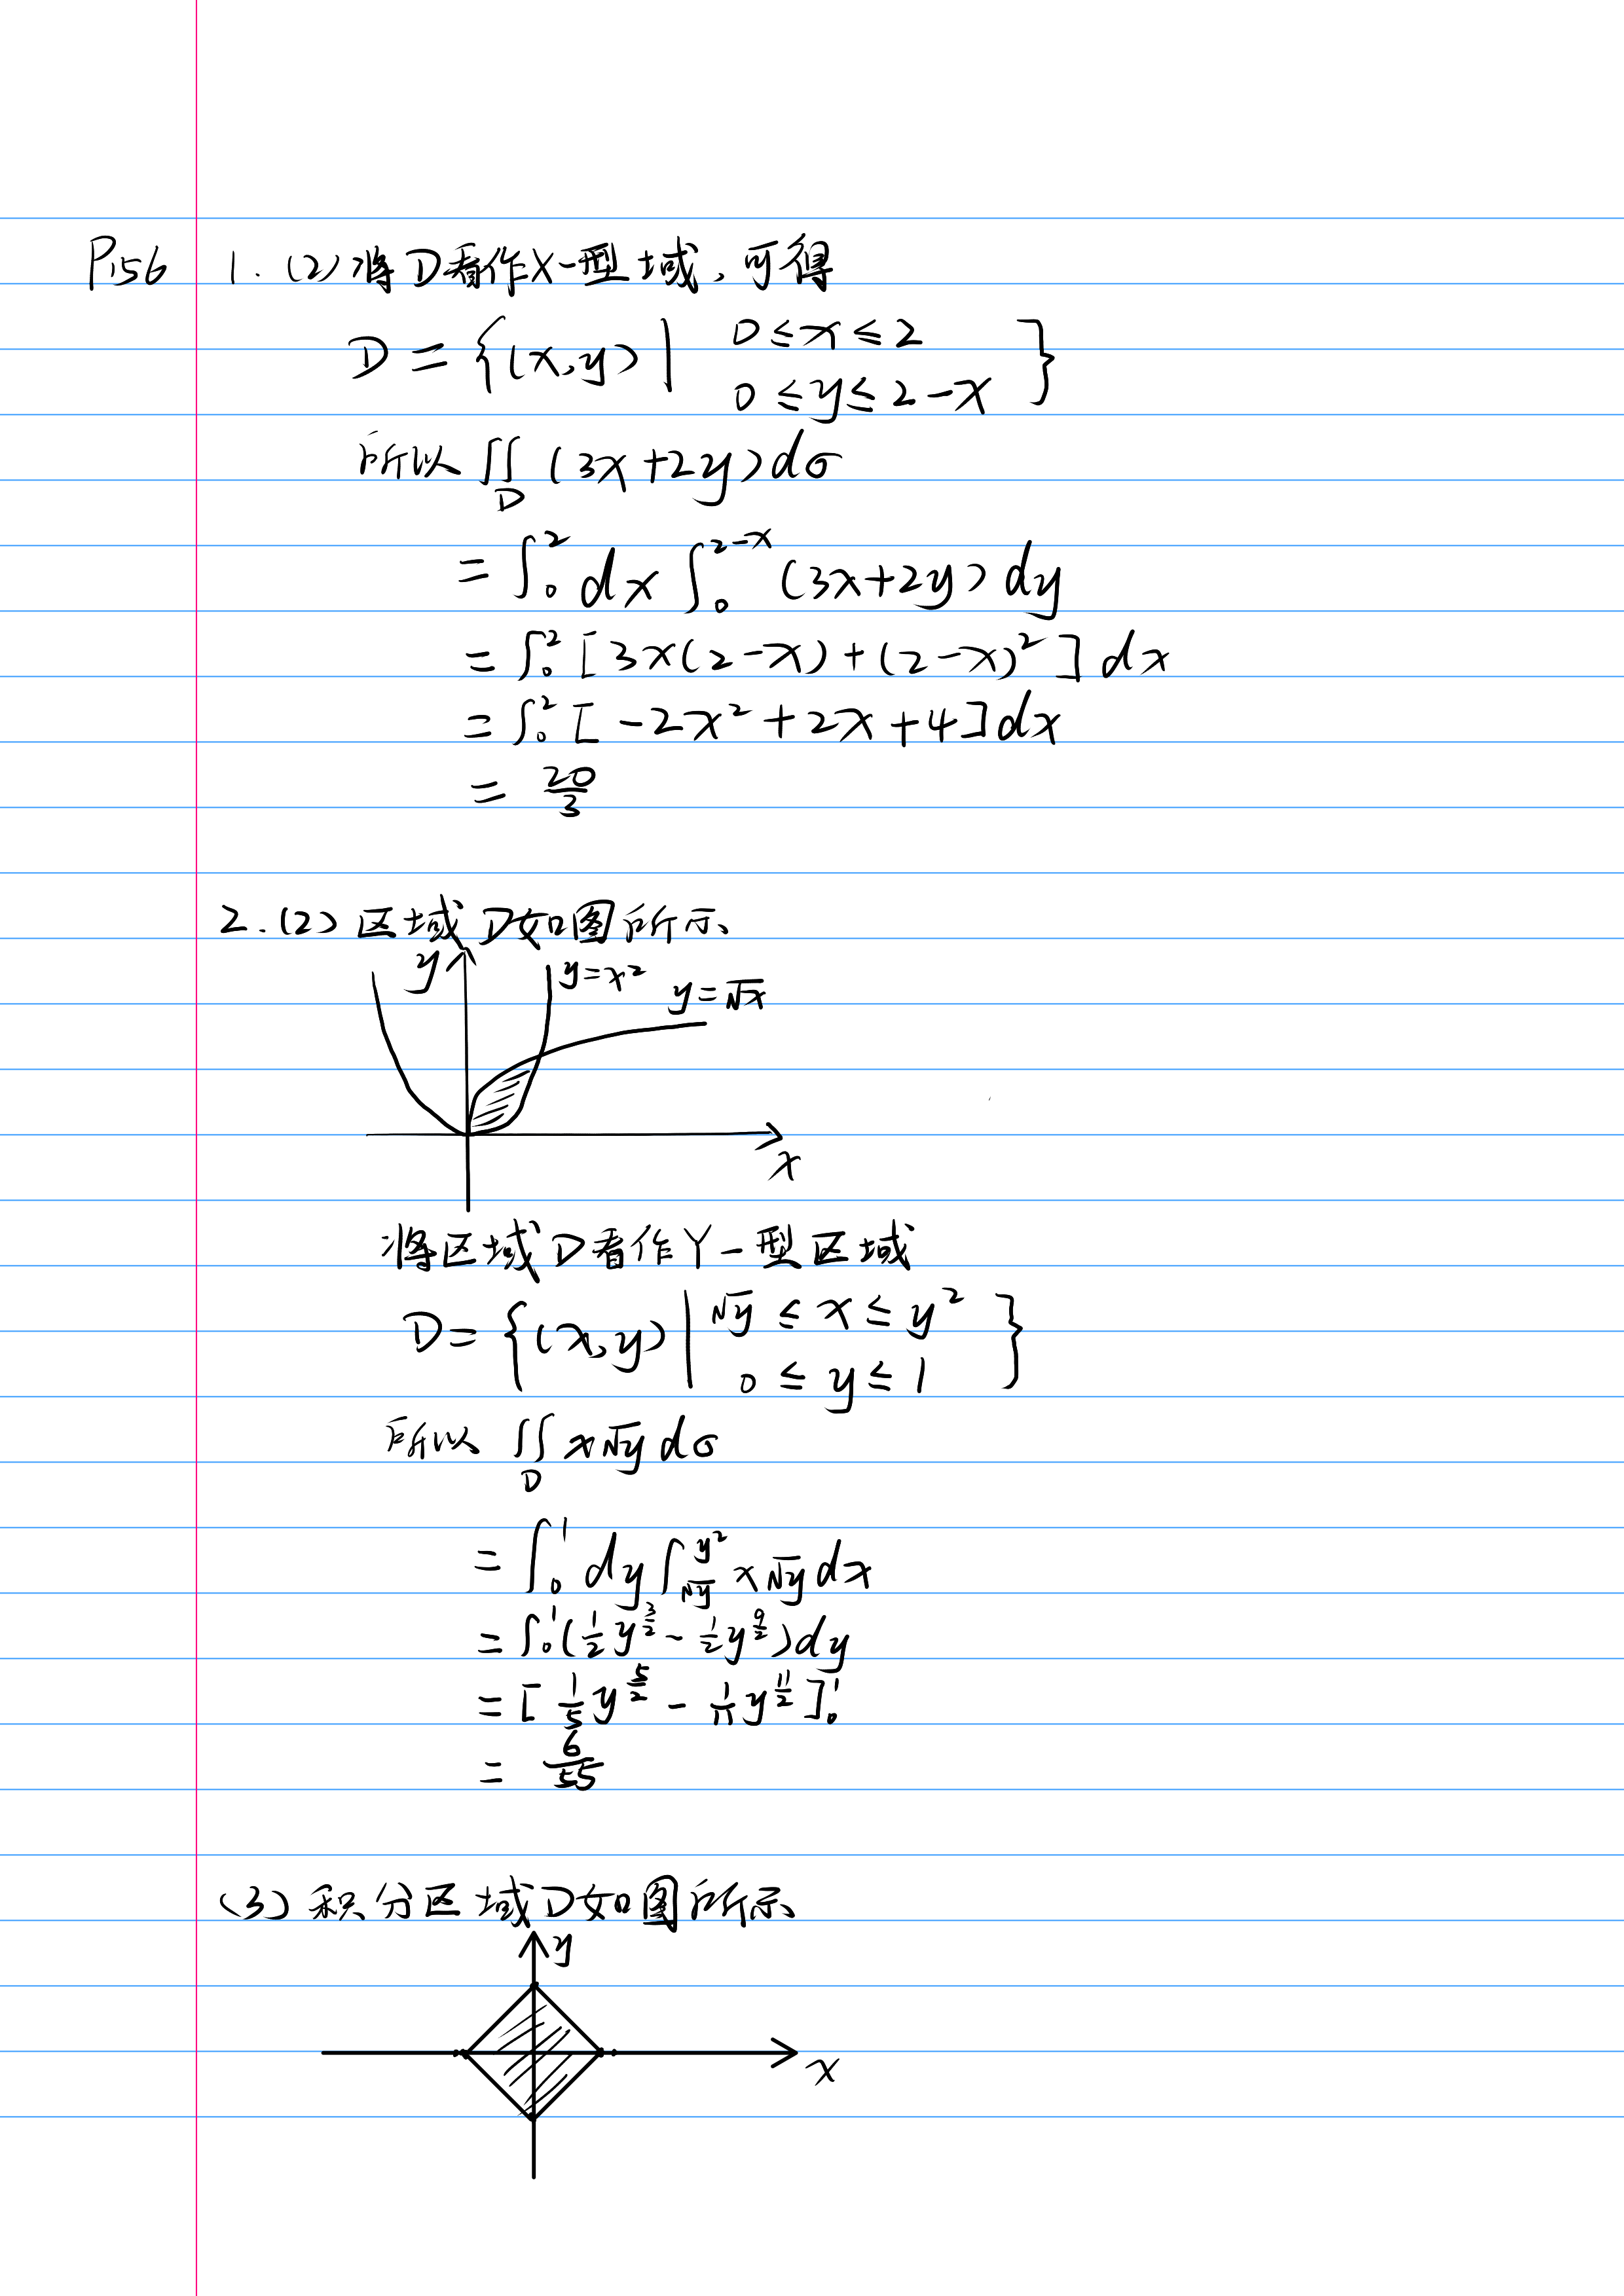 P156 1. (2) 将D看作X-型域,可得
D = {(x,y) | 0≤x≤2
0≤y≤2-x }
所以 ∬_D (3x+2y)dσ
= ∫₀² dx ∫₀^{2-x} (3x+2y) dy
= ∫₀² [3x(2-x)+(2-x)²] dx
= ∫₀² [-2x²+2x+4]dx
= 20/3
2.(2) 区域D如图所示
y y=x²
y=√x
x
将区域D看作Y-型区域
D= {(x,y) | √y ≤ x ≤ y²
0 ≤ y ≤ 1 }
所以 ∬_D x√y dσ
= ∫₀¹ dy ∫_{√y}^{y²} x√y dx
= ∫₀¹ (1/2 y^{3/2} - 1/2 y^{9/2})dy
= [1/5 y^{5/2} - 1/11 y^{11/2}]₀¹
= 6/55
(3) 积分区域D如图所示
y
x